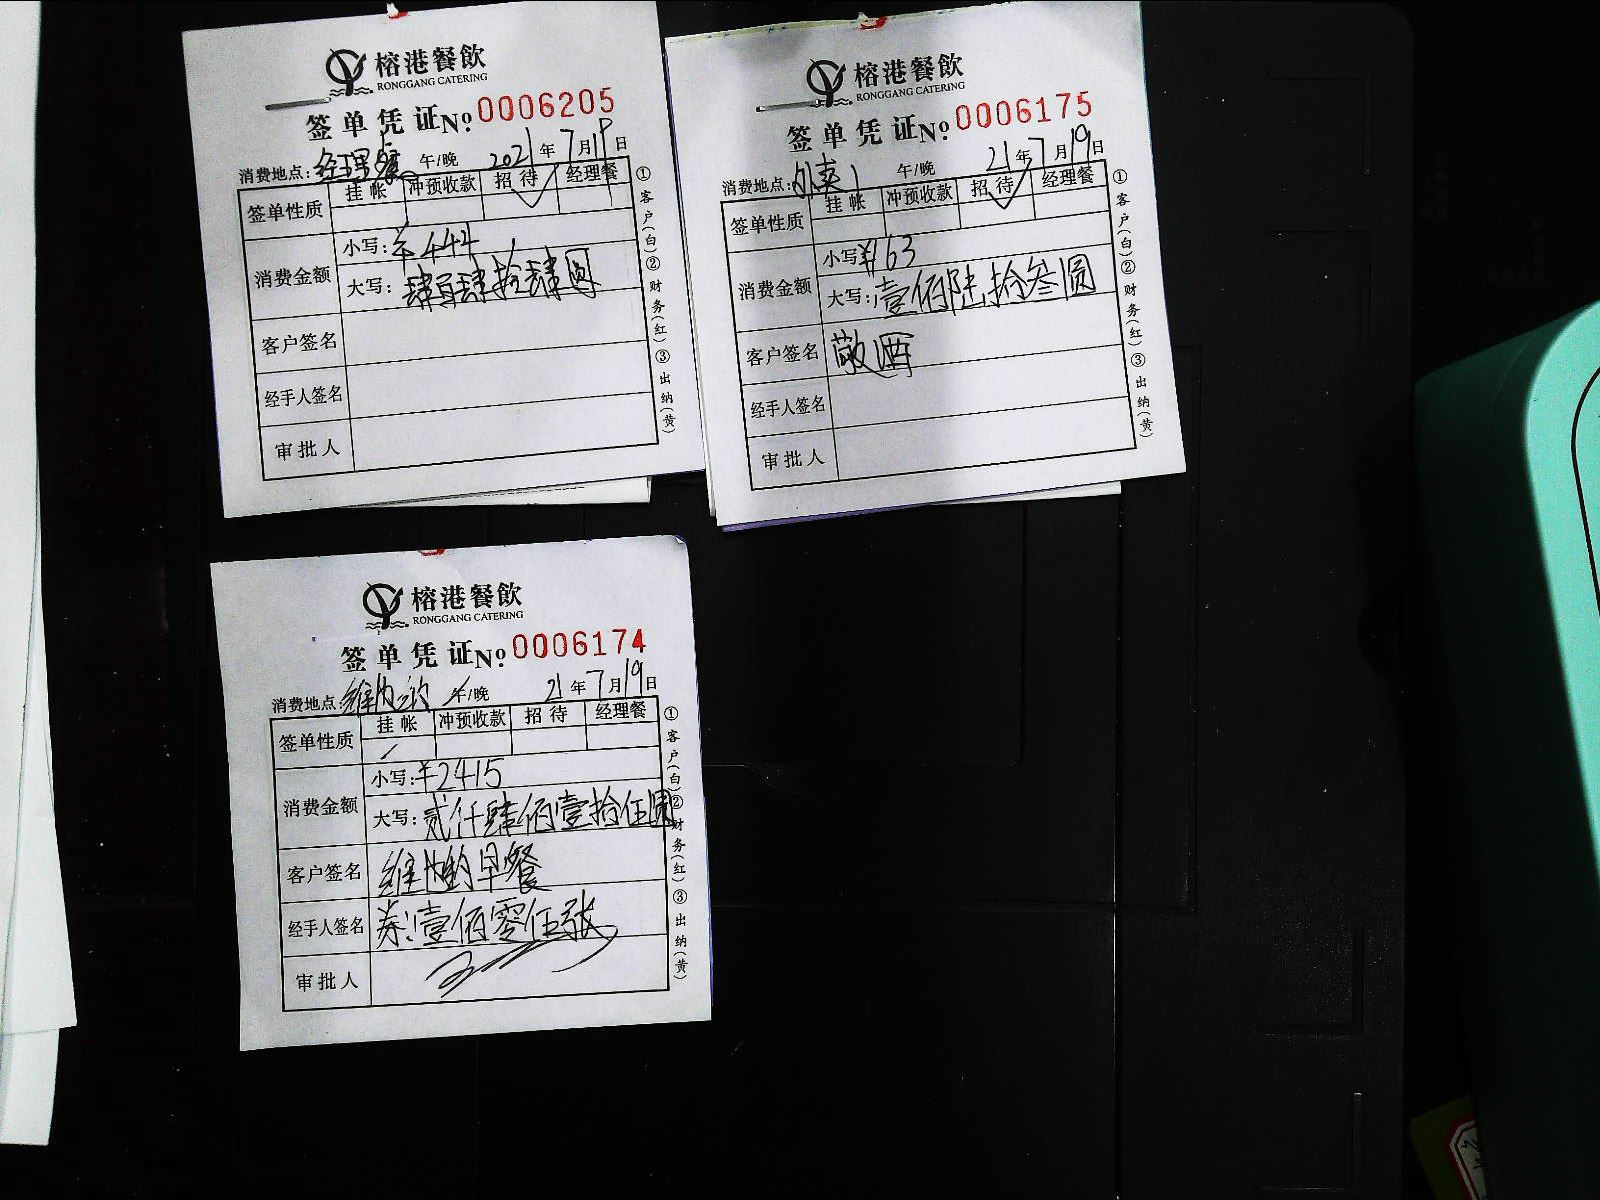 榕港餐飲
RONGGANG CATERING
签单凭证 No. 0006205
消费地点: 经理餐 午/晚 2021年7月19日
签单性质 挂帐 冲预收款 招待 经理餐
消费金额 小写: ¥444
大写: 肆百肆拾肆圆
客户签名
经手人签名
审批人
①客户(白)②财务(红)③出纳(黄)
榕港餐飲
RONGGANG CATERING
签单凭证 No. 0006175
消费地点: 午/晚 21年7月19日
签单性质 挂帐 冲预收款 招待 经理餐
消费金额 小写: ¥163
大写: 壹佰陆拾叁圆
客户签名 敬酒
经手人签名
审批人
①客户(白)②财务(红)③出纳(黄)
榕港餐飲
RONGGANG CATERING
签单凭证 No. 0006174
消费地点: 午/晚 21年7月19日
签单性质 挂帐 冲预收款 招待 经理餐
消费金额 小写: ¥2415
大写: 贰仟肆佰壹拾伍圆
客户签名 早餐
经手人签名 券:壹佰零伍张
审批人
①客户(白)②财务(红)③出纳(黄)